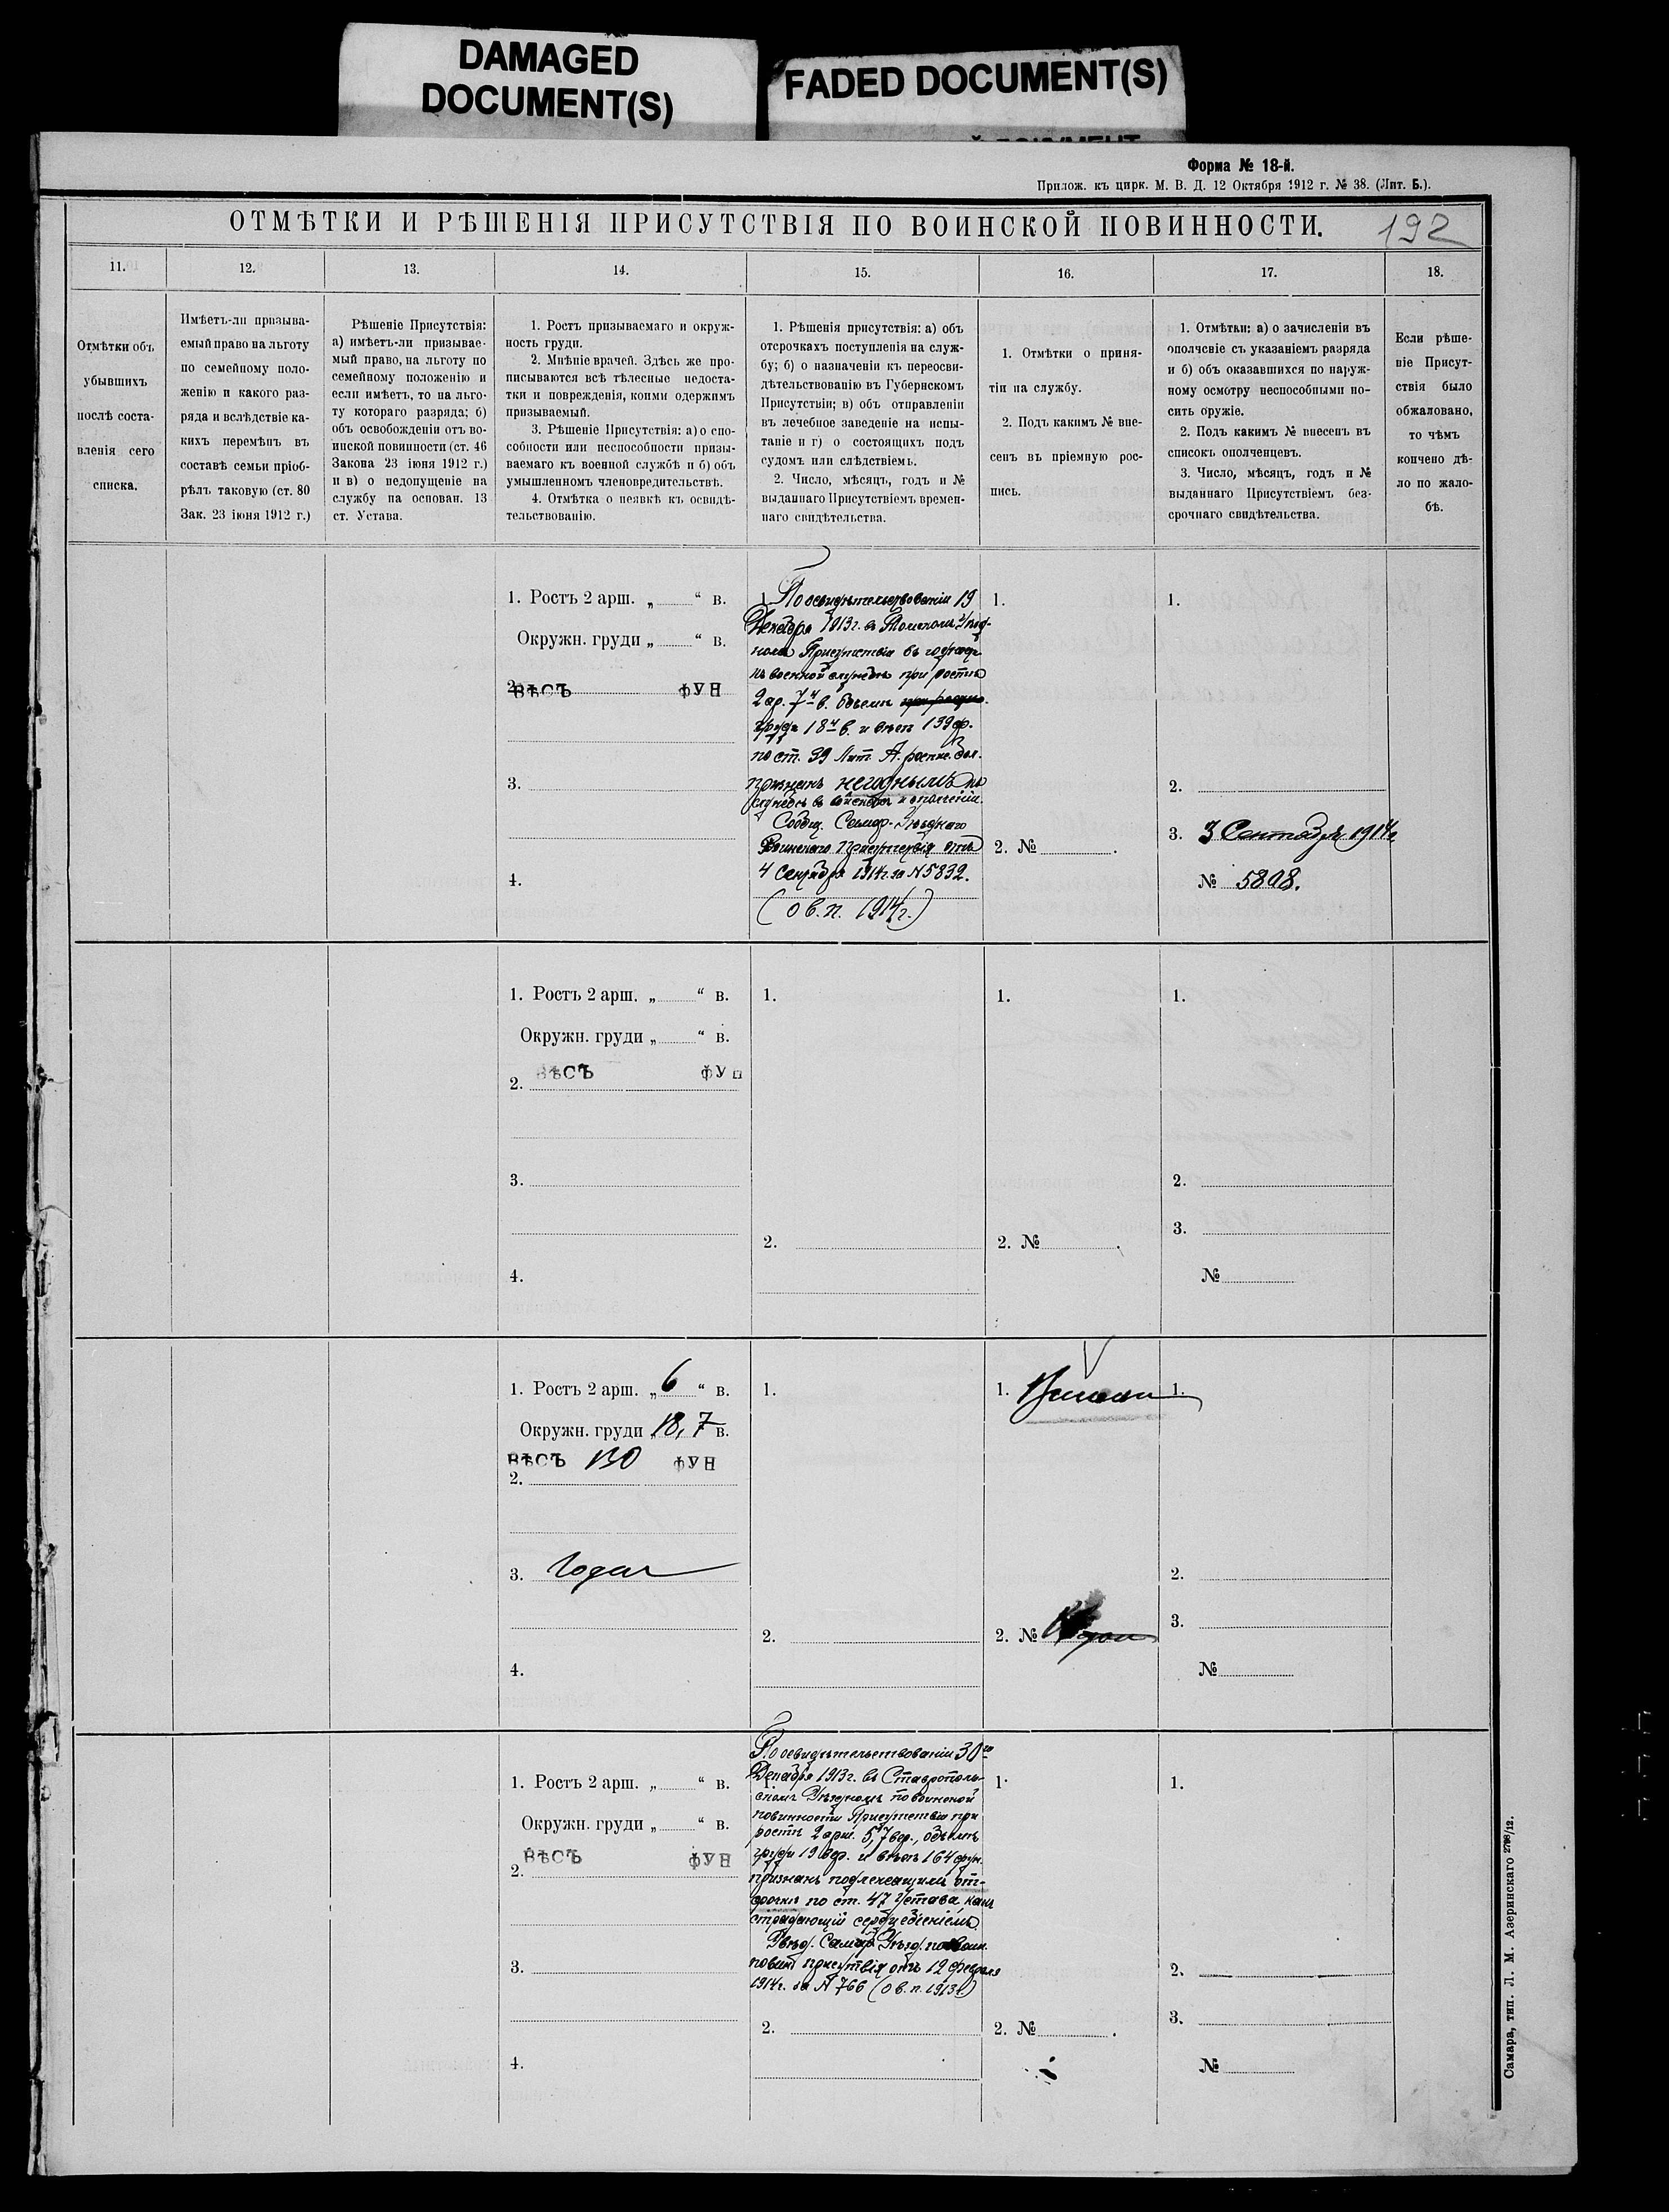 DAMAGED
DOCUMENT(S)
FADED DOCUMENT(S)
Форма № 18-й.
Прилож. къ цирк. М. В. Д. 12 Октября 1912 г. № 38. (Лит. Б.).
ОТМѢТКИ И РѢШЕНІЯ ПРИСУТСТВІЯ ПО ВОИНСКОЙ ПОВИННОСТИ.
192
11.
12.
13.
14.
15.
16.
17.
18.
Отмѣтки объ
убывшихъ
послѣ соста-
вленія сего
списка.
Имѣетъ-ли призыва-
емый право на льготу
по семейному поло-
женію и какого раз-
ряда и вслѣдствіе ка-
кихъ перемѣнъ въ
составѣ семьи пріоб-
рѣлъ таковую (ст. 80
Зак. 23 іюня 1912 г.)
Рѣшеніе Присутствія:
а) имѣетъ-ли призывае-
мый право, на льготу по
семейному положенію и
если имѣетъ, то на льго-
ту котораго разряда; б)
объ освобожденіи отъ во-
инской повинности (ст. 46
Закона 23 іюня 1912 г.)
и в) о недопущеніе на
службу на основан. 13
ст. Устава.
1. Ростъ призываемаго и окруж-
ность груди.
2. Мнѣніе врачей. Здѣсь же про-
писываются всѣ тѣлесные недоста-
тки и поврежденія, коими одержимъ
призываемый.
3. Рѣшеніе Присутствія: а) о спо-
собности или неспособности призы-
ваемаго къ военной службѣ и б) объ
умышленномъ членовредительствѣ.
4. Отмѣтка о неявкѣ къ освидѣ-
тельствованію.
1. Рѣшенія присутствія: а) объ
отсрочкахъ поступленія на служ-
бу; б) о назначеніи къ переосви-
дѣтельствованію въ Губернскомъ
Присутствіи; в) объ отправленіи
въ лечебное заведеніе на испы-
таніе и г) о состоящихъ подъ
судомъ или слѣдствіемъ.
2. Число, мѣсяцъ, годъ и №
выданнаго Присутствіемъ времен-
наго свидѣтельства.
1. Отмѣтки о приня-
тіи на службу.
2. Подъ какимъ № вне-
сенъ въ пріемную рос-
пись.
1. Отмѣтки: а) о зачисленіи въ
ополченіе съ указаніемъ разряда
и б) объ оказавшихся по наруж-
ному осмотру неспособными но-
сить оружіе.
2. Подъ какимъ № внесенъ въ
списокъ ополченцевъ.
3. Число, мѣсяцъ, годъ и №
выданнаго Присутствіемъ без-
срочнаго свидѣтельства.
Если рѣше-
ніе Присут-
ствія было
обжаловано,
то чѣмъ
кончено дѣ-
ло по жало-
бѣ.
1. Ростъ 2 арш. „ “ в.
Окружн. груди „ “ в.
2. ВѢСЪ ФУН
3.
4.
1. По освидѣтельствованіи 19
Декабря 1913 г. въ
Присутствіи
къ военной службѣ при ростѣ
2 ар. 7 4 в. объемѣ
груди 18 4 в. и вѣсѣ 139 ф.
по ст. 39 Лит. А. роспис. бол.
признанъ негоднымъ къ
службѣ въ войскахъ и ополченіи.
Сообщ. Самар. Уѣзднаго
Воинскаго Присутствія отъ
4 Сентября 1914 г. за № 5832.
(о в. п. 1914 г.)
1.
2. №
1.
2.
3. 3 Сентября 1914 г.
№ 5808.
1. Ростъ 2 арш. „ “ в.
Окружн. груди „ “ в.
2. ВѢСЪ ФУН
3.
4.
1.
2.
1.
2. №
1.
2.
3.
№
1. Ростъ 2 арш. „ 6 “ в.
Окружн. груди 18, 7 в.
ВѢСЪ 130 ФУН
2.
3. Годен
4.
1.
2.
1.
2. №
1.
2.
3.
№
1. Ростъ 2 арш. „ “ в.
Окружн. груди „ “ в.
2. ВѢСЪ ФУН
3.
4.
По освидѣтельствованіи 30го
1. Декабря 1913 г. въ Ставрополь-
скомъ Уѣздномъ по воинской
повинности Присутствіи при
ростѣ 2 арш. 5,7 вер., объемѣ
груди 19 вер. и вѣсѣ 164 фун.
признанъ подлежащимъ от-
срочкѣ по ст. 47 Устава, какъ
страдающій сердцебіеніемъ.
Увѣд. Самар. Уѣзд. по воин.
повин. присутствія отъ 12 февраля
1914 г. за № 766 (о в. п. 1913 г.)
2.
1.
2. №
1.
2.
3.
№
Самара, тип. Л. М. Азеринскаго 2798/12.